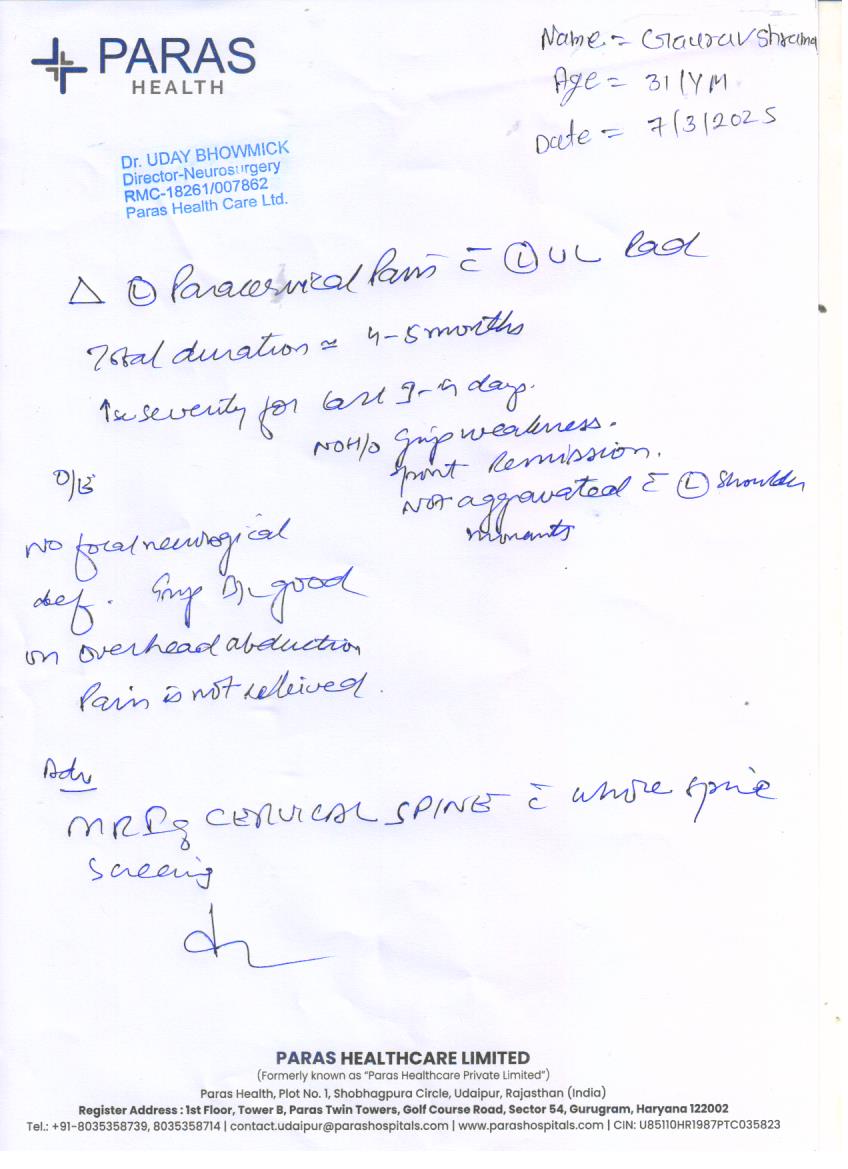 PARAS
HEALTH
Name = Gaurav Shrama
Age = 31/Y M
Date = 7/3/2025
Dr. UDAY BHOWMICK
Director-Neurosurgery
RMC-18261/007862
Paras Health Care Ltd.
△ Ⓛ Paracervical Pain c̄ Ⓛ UL Rad
Total duration ≃ 4-5 months
↑se severity for last 3-4 days.
NO H/o Grip weakness.
spont Remission.
Not aggravated c̄ Ⓛ Shoulder
O/E
No focal neurological
def. Grip B/L good
on overhead abduction
Pain is not relieved.
Adv
MRI of CERVICAL SPINE c̄ whole spine
PARAS HEALTHCARE LIMITED
(Formerly known as “Paras Healthcare Private Limited”)
Paras Health, Plot No. 1, Shobhagpura Circle, Udaipur, Rajasthan (India)
Register Address : 1st Floor, Tower B, Paras Twin Towers, Golf Course Road, Sector 54, Gurugram, Haryana 122002
Tel.: +91-8035358739, 8035358714 | contact.udaipur@parashospitals.com | www.parashospitals.com | CIN: U85110HR1987PTC035823